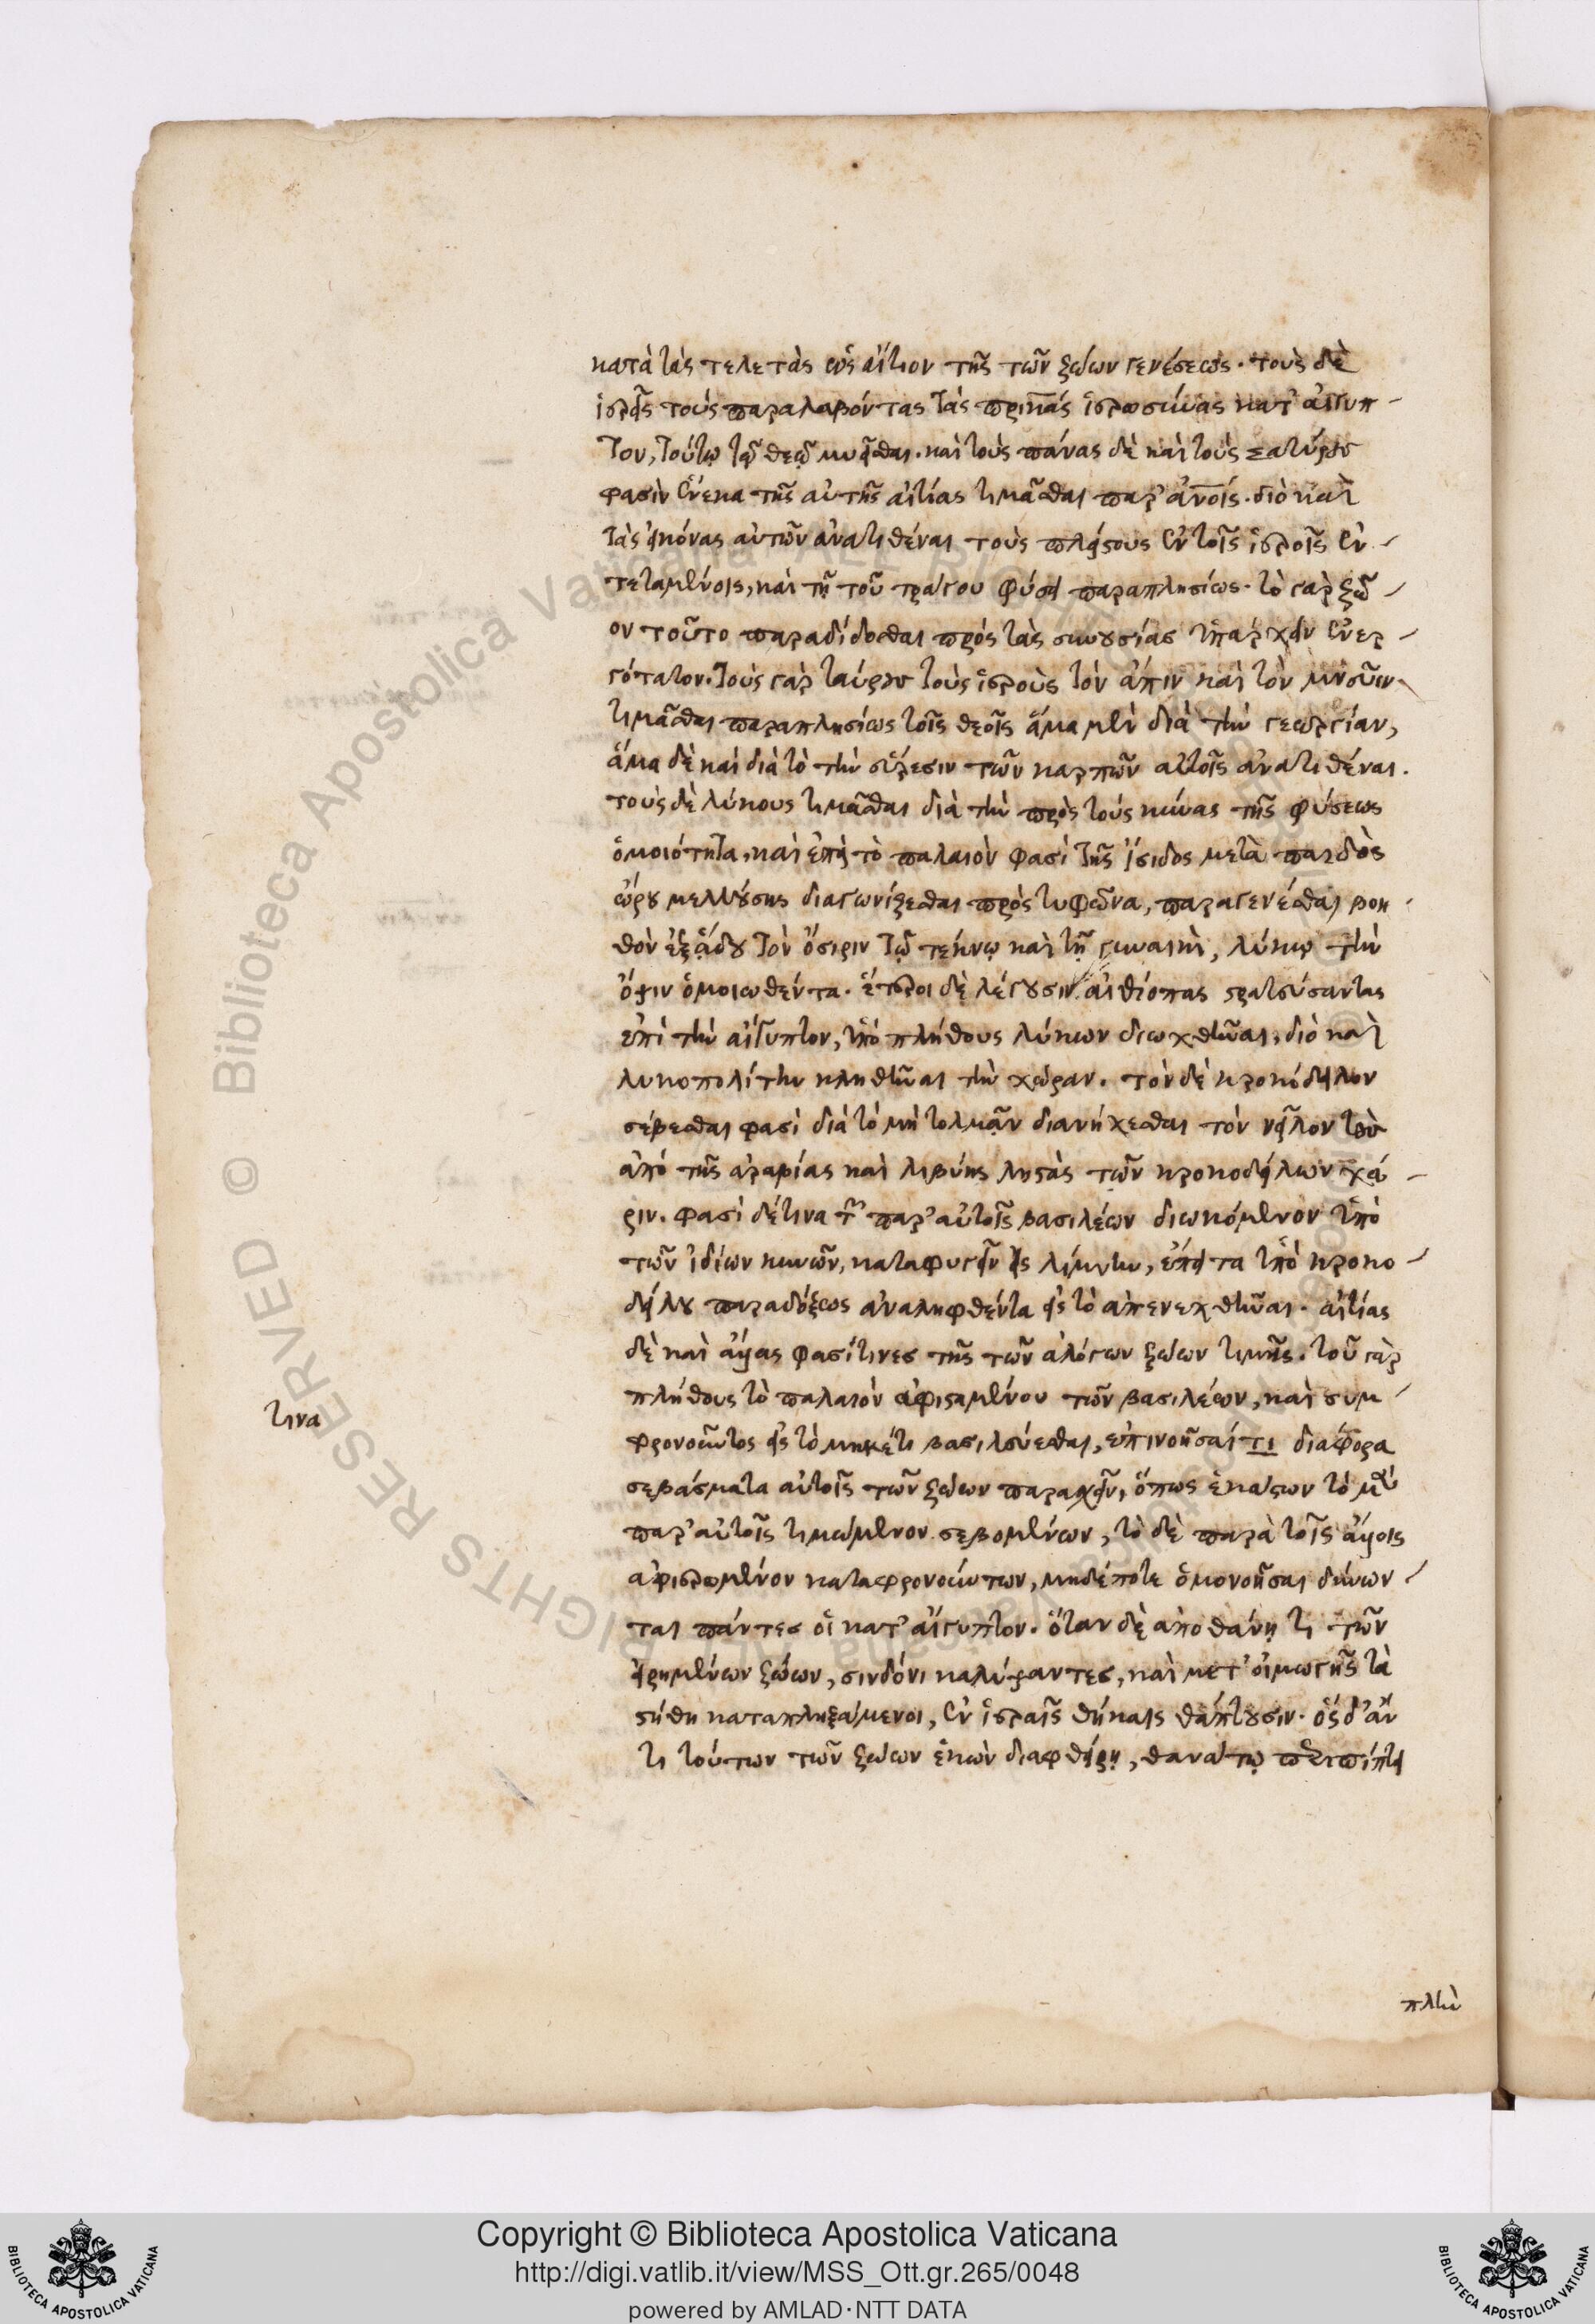 κατὰ τὰς τελετὰς ὡς αἴτιον τῆς τῶν ζώων γενέσεως. τοὺς δὲ
ἱερεῖς τοὺς παραλαβόντας τὰς πρικὰς ἱερωσύνας κατ' αἴγυπ-
τον, τούτῳ τῷ θεῷ μυεῖσθαι. καὶ τοὺς πάνας δὲ καὶ τοὺς σατύρους
φασὶν ἕνεκα τῆς αὐτῆς αἰτίας τιμᾶσθαι παρ' ἀνοις. διὸ καὶ
τὰς εἰκόνας αὐτῶν ἀνατιθέναι τοὺς πλείστους ἐν τοῖς ἱεροῖς ἐν-
τεταμένοις, καὶ τῇ τοῦ τράγου φύσει παραπλησίως. τὸ γὰρ ζῶ-
ον τοῦτο παραδίδοσθαι πρὸς τὰς συνουσίας ὑπάρχειν ἐνερ-
γότατον. τοὺς γὰρ ταύρους τοὺς ἱεροὺς τὸν ἄπιν καὶ τὸν μνευιν
τιμᾶσθαι παραπλησίως τοῖς θεοῖς ἅμα μὲν διὰ τὴν γεωργίαν,
ἅμα δὲ καὶ διὰ τὸ τὴν εὕρεσιν τῶν καρπῶν αὐτοῖς ἀνατιθέναι.
τοὺς δὲ λύκους τιμᾶσθαι διὰ τὴν πρὸς τοὺς κύνας τῆς φύσεως
ὁμοιότητα, καὶ ἐπεὶ τὸ παλαιὸν φασὶ τῆς ἴσιδος μετὰ παιδὸς
ὥρου μελλούσης διαγωνίζεσθαι πρὸς τυφῶνα, παραγενέσθαι βοη-
θὸν ἐξ ᾅδου τὸν ὄσιριν τῷ τέκνῳ καὶ τῇ γυναικὶ, λύκῳ τὴν
ὄψιν ὁμοιωθέντα. ἕτεροι δὲ λέγουσιν αἰθίοπας στρατεύσαντας
ἐπὶ τὴν αἴγυπτον, ὑπὸ πλήθους λύκων διωχθῆναι, διὸ καὶ
λυκοπολίτην κληθῆναι τὴν χώραν. τὸν δὲ κροκόδειλον
σέβεσθαι φασὶ διὰ τὸ μὴ τολμᾶν διανήχεσθαι τὸν νεῖλον τοὺς
ἀπὸ τῆς ἀραβίας καὶ λιβύης λῃστὰς τῶν κροκοδείλων χά-
ριν. φασὶ δέ τινα τῶν παρ' αὐτοῖς βασιλέων διωκόμενον ὑπὸ
τῶν ἰδίων κυνῶν, καταφυγεῖν εἰς λίμνην, ἔπειτα ὑπὸ κροκο-
δείλου παραδόξως ἀναληφθέντα εἰς τὸ ἀπενεχθῆναι. αἰτίας
δὲ καὶ ἄλλας φασί τινες τῆς τῶν ἀλόγων ζώων τιμῆς. τοῦ γὰρ
πλήθους τὸ παλαιὸν ἀφισταμένου τῶν βασιλέων, καὶ συμ-
τινα
φρονοῦντος εἰς τὸ μηκέτι βασιλεύεσθαι, ἐπινοῆσαί τι διάφορα
σεβάσματα αὐτοῖς τῶν ζώων παρασχεῖν, ὅπως ἑκάστων τὸ μὲν
παρ' αὐτοῖς τιμώμενον σεβομένων, τὸ δὲ παρὰ τοῖς ἄλλοις
ἀφιερωμένον καταφρονούντων, μηδέποτε ὁμονοῆσαι δύνων-
ται πάντες οἱ κατ' αἴγυπτον. ὅταν δὲ ἀποθάνῃ τι τῶν
εἰρημένων ζώων, σινδόνι καλύψαντες, καὶ μετ' οἰμωγῆς τὰ
στήθη καταπληξάμενοι, ἐν ἱεραῖς θήκαις θάπτουσιν. ὃς δ' ἄν
τι τούτων τῶν ζώων ἑκὼν διαφθείρῃ, θανάτῳ περιπίπτει
πλὴν
Copyright © Biblioteca Apostolica Vaticana
http://digi.vatlib.it/view/MSS_Ott.gr.265/0048
powered by AMLAD·NTT DATA